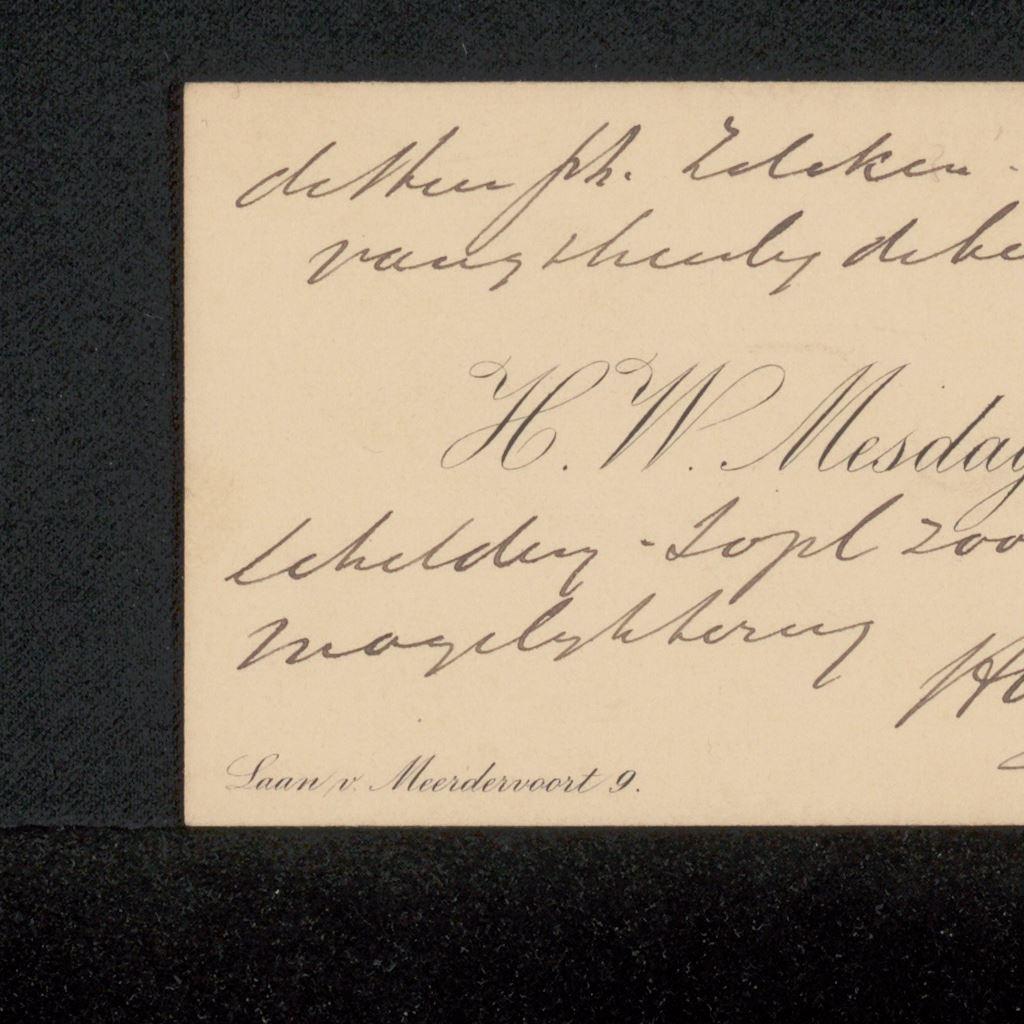 de Heer Ph. Zilcken -
vang hierby de be
H. W. Mesdag
schilderij - Zoo
mogelyk terug
Ho
Laan v. Meerdervoort 9.